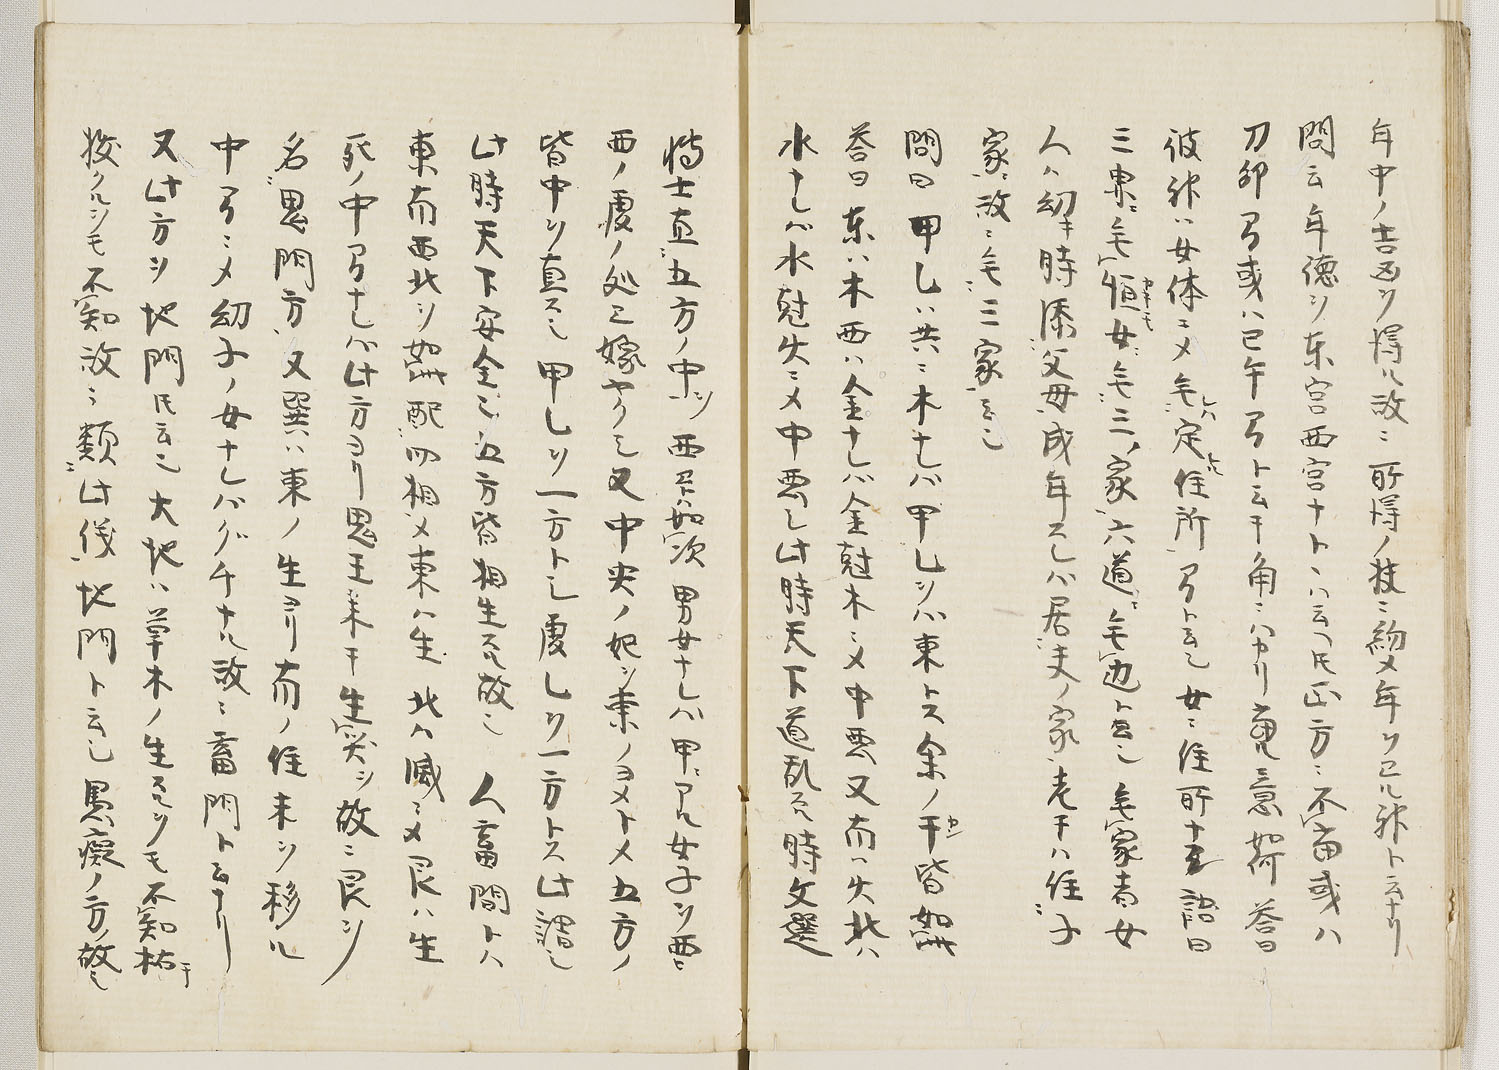 年中ノ吉凶ヲ得ル故ニ所得ノ枝ニ約メ年ヲ己ル神ト云ナリ
問云年徳ヲ东宮西宮ナトトハ云ヘ𪜈正方ニ不當或ハ
刀卯ノ間或ハ巳午ノ間ト云キ角ニハヤリ意如何答曰
彼神ハ女体ニメ无定住所ノ間ト云也女ニ住所ナキ語曰
三界ニ无恒女ニ无三家六道ニ无辺ト云也无家者女
人ハ幼キ時添父母成年スレハ居夫ノ家老テハ住子
家ニ故ニ无三家云也
問曰甲乙ハ共ニ木ナレハ甲乙ヲハ東トス余ノ干皆如此
答曰东ハ木西ハ金ナレハ金尅木ニメ中悪又南ハ火北ハ
水ナレハ水尅火ニメ中悪シ此時天下道乱ル時文選
博士直五方ノ中ヲ西ヲハ如次男女ナレハ甲ニアル女子ヲ西ニ
西ノ庚ノ処ニ嫁ヤクシ又中央ノ妃ヲ東ノヨメトメ五方ノ
皆中ヲ直ス也甲乙ヲ一方トシ庚乙ヲ一方トス此謂也
此時天下安全也五方皆相生スル故也 人畜間トハ
東南西北ヲ如此配四相メ東ハ生北ハ滅ニメ艮ハ生
死ノ中間ナレハ此方ヨリ鬼王来テ生災ヲ故ニ艮ヲ
名鬼門方又巽ハ東ノ生ヨリ南ノ住末ヲ移ル
中間ニメ幼子ノ女ナレハグチナル故ニ畜門ト云ナリ
又此方ヲ地門𪜈云也大地ハ草木ノ生スルヲモ不知枯テ
捘クルヲモ不知故ニ類此儀地門ト云也愚癡ノ方ノ故也